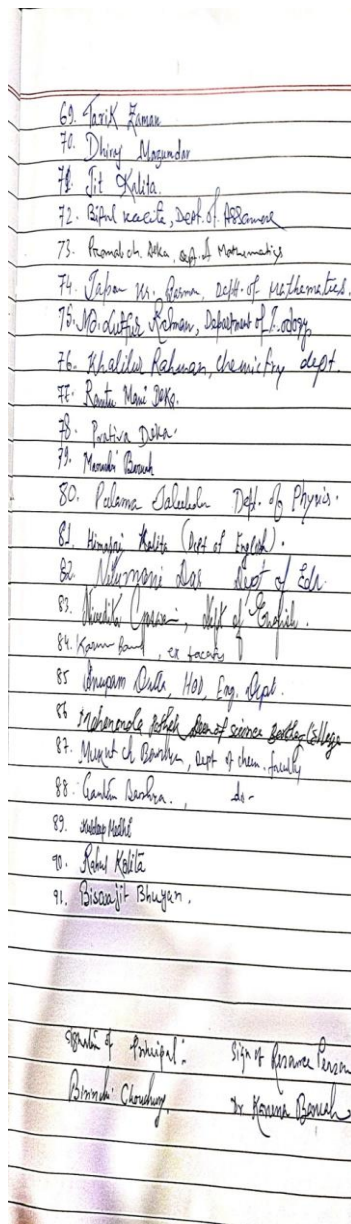 69. Tarik Zaman
70. Dhiraj Mazumdar
71. Jit Kalita.
72. Bipul Kalita, Dept. of Assamese
73. Pramod ch. Deka, Dept. of Mathematics
74. Tapan Kr. Barma, Deptt. of Mathematics.
75. Md. Lutfur Rahman, Department of Zoology
76. Khalilur Rahman, Chemistry dept.
77. Rantu Mani Deka.
78. Prativa Deka.
79. Baruah
80. Dept. of Physics.
81. Himadri Kalita (Dept of English).
82. Nilumani Das Dept of Edn.
83. Nivedita Goswami, Dept of English.
84. , ex faculty
85 Anupam Dutta, HOD, Eng. Dept.
86 Pathak Dean of science College
87. Mukut ch Barhya, Dept of chem. faculty
88. , do-
89. Kuldeep Medhi
90. Rahul Kalita
91. Biswajit Bhuyan.
Signature of Principal: Sign of Resource Person
Birinchi Choudhury, Dr. Karuna Baruah